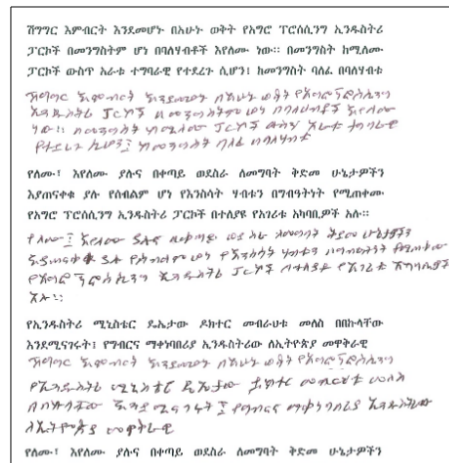 ሽግግር እምብርት እንደመሆኑ በአሁኑ ወቅት የአግሮ ፕሮሰሲንግ ኢንዱስትሪ
ፓርኮች በመንግስትም ሆነ በባለሃብቶች እየለሙ ነው። በመንግስት ከሚለሙ
ፓርኮች ውስጥ አራቱ ተግባራዊ የተደረጉ ሲሆን፤ ከመንግስት ባለፈ በባለሃብቱ
ሽግግር እምብርት እንደመሆኑ በአሁኑ ወቅት የአግሮፕሮሰሲንግ
ኢንዱስትሪ ፓርኮች በመንግስትም ሆነ በባለሃብቶች እየለሙ
ነው። በመንግስት ከሚለሙ ፓርኮች ውስጥ አራቱ ተግባራዊ
የተደረጉ ሲሆን፤ ከመንግስት ባለፈ በባለሃብቱ
የለሙ፤ እየለሙ ያሉና በቀጣይ ወደስራ ለመግባት ቅድመ ሁኔታዎችን
እያጠናቀቁ ያሉ የሰብልም ሆነ የእንስሳት ሃብቱን በግብዓትነት የሚጠቀሙ
የአግሮ ፕሮሰሲንግ ኢንዱስትሪ ፓርኮች በተለያዩ የአገሪቱ አካባቢዎች አሉ።
የለሙ፤ እየለሙ ያሉና በቀጣይ ወደ ስራ ለመግባት ቅድመ ሁኔታዎችን
እያጠናቀቁ ያሉ የሰብልም ሆነ የእንስሳት ሃብቱን በግብዓትነት የሚጠቀሙ
የአግሮ ፕሮሰሲንግ ኢንዱስትሪ ፓርኮች በተለያዩ የአገሪቱ አካባቢዎች
አሉ።
የኢንዱስትሪ ሚኒስቴር ዴኤታው ዶክተር መብራህቱ መለስ በበኩላቸው
እንደሚናገሩት፤ የግብርና ማቀነባበሪያ ኢንዱስትሪው ለኢትዮጵያ መዋቅራዊ
ሽግግር እምብርት እንደመሆኑ በአሁኑ ወቅት የአግሮፕሮሰሲንግ
የኢንዱስትሪ ሚኒስቴር ዴኤታው ዶክተር መብራህቱ መለስ
በበኩላቸው እንደሚናገሩት፤ የግብርና ማቀነባበሪያ ኢንዱስትሪው
ለኢትዮጵያ መዋቅራዊ
የለሙ፤ እየለሙ ያሉና በቀጣይ ወደስራ ለመግባት ቅድመ ሁኔታዎችን